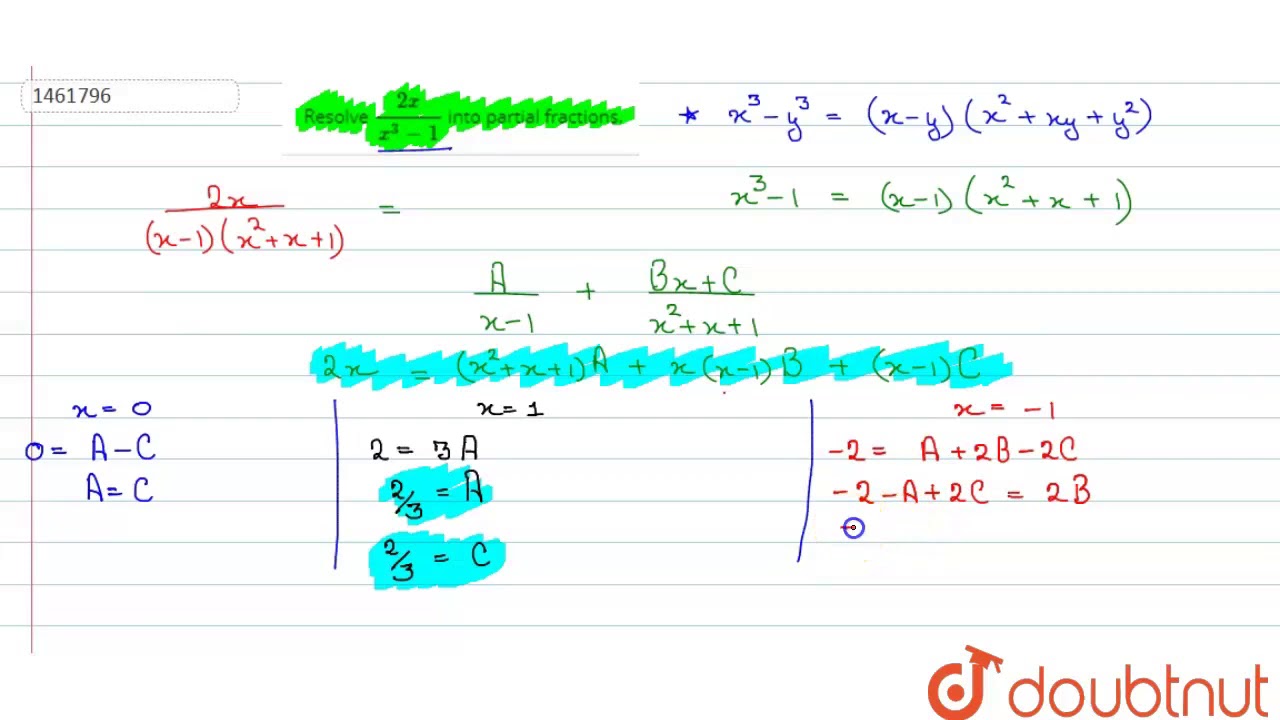 1461796
Resolve 2x/(x³ − 1) into partial fractions.
* x³ − y³ = (x−y)(x² + xy + y²)
x³ − 1 = (x−1)(x² + x + 1)
2x/((x−1)(x²+x+1)) =
A/(x−1) + (Bx+C)/(x²+x+1)
2x = (x²+x+1)A + x(x−1)B + (x−1)C
x = 0
0 = A − C
A = C
x = 1
2 = 3A
2/3 = A
2/3 = C
x = −1
−2 = A + 2B − 2C
−2 − A + 2C = 2B
doubtnut